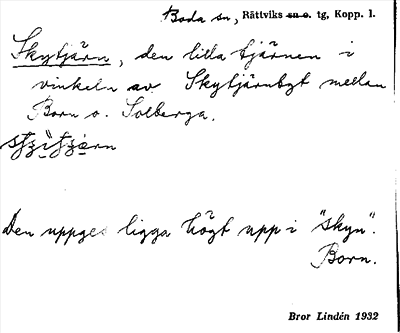 Boda sn, Rättviks sn o. tg, Kopp. l.
Skytjärn, den lilla tjärnen i
vinkeln av Skytjärnbyt mellan
Born o. Solberga.
Den uppges ligga högt upp i "skyn".
Born.
Bror Lindén 1932